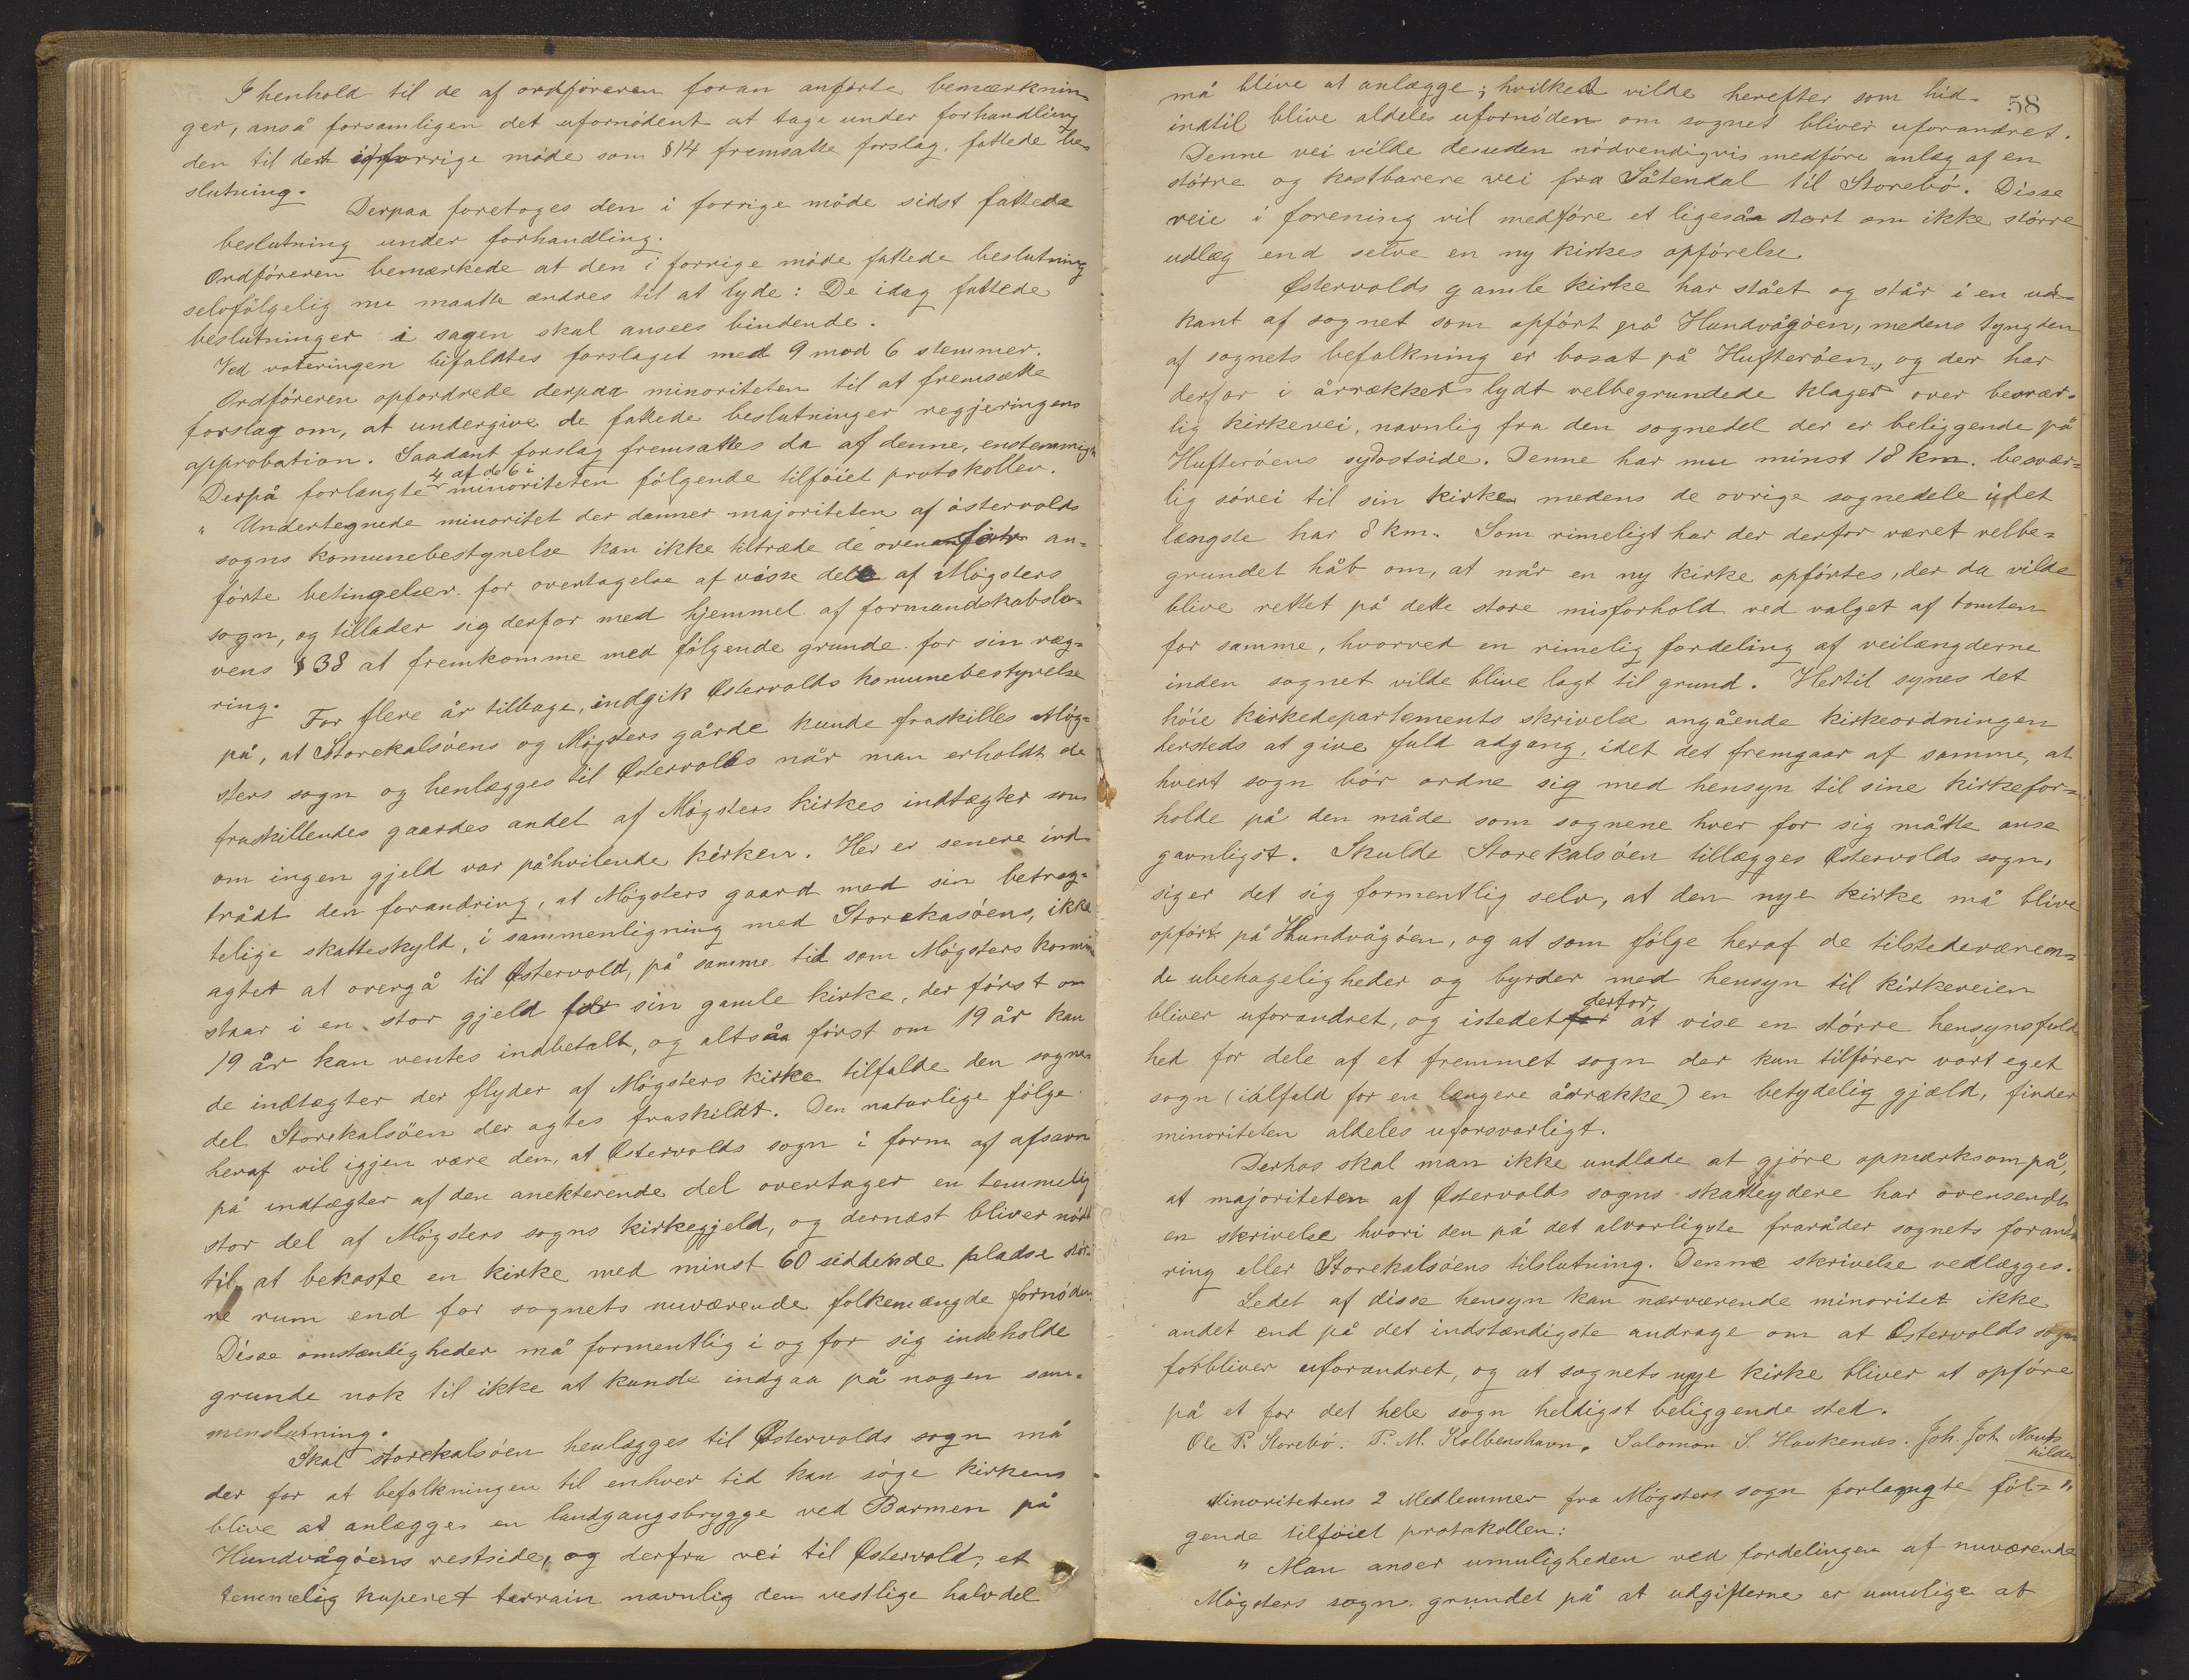 I henhold til de af ordföreren foran anförte bemærknin-
ger, anså forsamligen det ufornödent at tage under forhandling
den til det forrige möde som § 14 fremsatte forslag, fattede be-
slutning.
Derpaa foretoges den i forrige möde sidst fattede
beslutning under forhandling.
Ordföreren bemærkede at den i forrige möde fattede beslutning
selvfölgelig nu maatte ændres til at lyde: De idag fattede
beslutninger i sagen skal ansees bindende.
Ved voteringen bifaldtes forslaget med 9 mod 6 stemmer.
Ordföreren opfordrede derpaa minoriteten til at fremsætte
forslag om, at undergive de fattede beslutninger regjeringens
approbation. Saadant forslag fremsattes da af denne, enstemmigt
Derpå forlangte 4 af de 6 i minoriteten fölgende tilföiet protokollen.
" Undertegnede minoritet der danner majoriteten af östervolds
sogns komunebestyrelse kan ikke tiltræde de oven an-
förte betingelser for overtagelse af visse dele af Mögsters
sogn, og tillader sig derfor med hjemmel af formandskabslo-
vens § 38 at fremkomme med fölgende grunde for sin væg-
ring.
For flere år tilbage, indgik Østervolds komunebestyrelse
på, at Storekalsöens og Mögsters gårde kunde fraskilles Mög-
sters sogn og henlægges til Østervolds når man erholdt de
fraskillendes gaardes andel af Mögsters kirkes indtægter som
om ingen gjeld var påhvilende kirken. Her er senere ind-
trådt den forandring, at Mögsters gaard med sin betrag-
telige skatteskyld, i sammenligning med Storekasöens, ikke
agtet at overgå til Østervold, på samme tid som Mögsters komun
staar i en stor gjeld for sin gamle kirke, der först om
19 år kan ventes indbetalt, og altsaa först om 19 år kan
de indtægter der flyder af Mögsters kirke tilfalde den sogne-
del Storekalsöen der agtes fraskildt. Den naturlige fölge
heraf vil igjen være den, at Østervolds sogn i form af afsavn
på indtægter af den anekterende del overtager en temmelig
stor del af Mögsters sogns kirkegjeld, og dernæst bliver nödt
til at bekoste en kirke med minst 60 siddende pladse stör-
re rum end for sognets nuværende folkemængde fornöden.
Disse omstændigheder må formentlig i og for sig indeholde
grunde nok til ikke at kunde indgaa på nogen sam-
menslutning.
Skal storekalsöen henlægges til Østervolds sogn må
der for at befolkningen til enhver tid kan söge kirken
blive at anlægges en landgangsbrygge ved Barmen på
Hundvågöens vestside, og derfra vei til Østervold, et
temmelig kuperet terrain navnlig den vestlige halvdel
58
må blive at anlægge; hvilket vilde herefter som hid-
indtil blive aldeles ufornöden om sognet bliver uforandret.
Denne vei vilde desuden nödvendigvis medföre anlæg af en
större og kostbarere vei fra Såtendal til Storebö. Disse
veie i forening vil medföre et ligesåa stort om ikke större
udlæg end selve en ny kirkes opförelse
Østervolds gamle kirke har stået og står i en ud-
kant af sognet som opfört på Hundvågöen, medens tyngden
af sognets befolkning er bosat på Hufteröen, og der har
derfor i årrækker lydt velbegrundede klager over besvær-
lig kirkevei, navnlig fra den sognedel der er beliggende på
Hufteröens sydostside. Denne har nu minst 18 km. besvær-
lig sövei til sin kirke medens de ovrige sognedele i det
længste har 8 km. Som rimeligt har der derfor været velbe-
grundet håb om, at når en ny kirke opförtes, der da vilde
blive rettet på dette store misforhold ved valget af tomten
for samme, hvorved en rimelig fordeling af veilængderne
inden sognet vilde blive lagt til grund. Hertil synes det
höie kirkedepartements skrivelse angående kirkeordningen
hersteds at give fuld adgang, idet det fremgaar af samme, at
hvert sogn bör ordne sig med hensyn til sine kirkefor-
holde på den måde som sognene hver for sig måtte anse
gavnligst. Skulde Storekalsöen tillægges Østervolds sogn,
siger det sig formentlig selv, at den nye kirke må blive
opfört på Hundvågöen, og at som fölge heraf de tilstedeværen-
de ubehageligheder og byrder med hensyn til kirkeveien
bliver uforandret, og istedet derfor, at vise en större hensynsfuld
hed for dele af et fremmet sogn der kun tilförer vort eget
sogn (ialfald for en længere årrække) en betydelig gjæld, finder
minoriteten aldeles uforsvarligt.
Derhos skal man ikke undlade at gjöre opmærksom på,
at majoriteten af Østervolds sogns skatteydere har oversendt
en skrivelse hvori den på det alvorligste fraråder sognets forand
ring eller Storekalsöens tilslutning. Denne skrivelse vedlægges.
Ledet af disse hensyn kan nærværende minoritet ikke
andet end på det indstændigste andrage om at Østervolds sogn
forbliver uforandret, og at sognets nye kirke bliver at opföre
på et for det hele sogn heldigst beliggende sted.
Ole P. Storebö. P. M. Kolbenshavn. Salomon S. Haukenæs. Joh. Joh. Navts
kilden
Minoritetens 2 Medlemmer fra Mögsters sogn forlangte föl- "
gende tilföiet protokollen:
" Man anser umuligheden ved fordelingen af nuværende
Mögsters sogn grundet på at udgifterne er umulige at